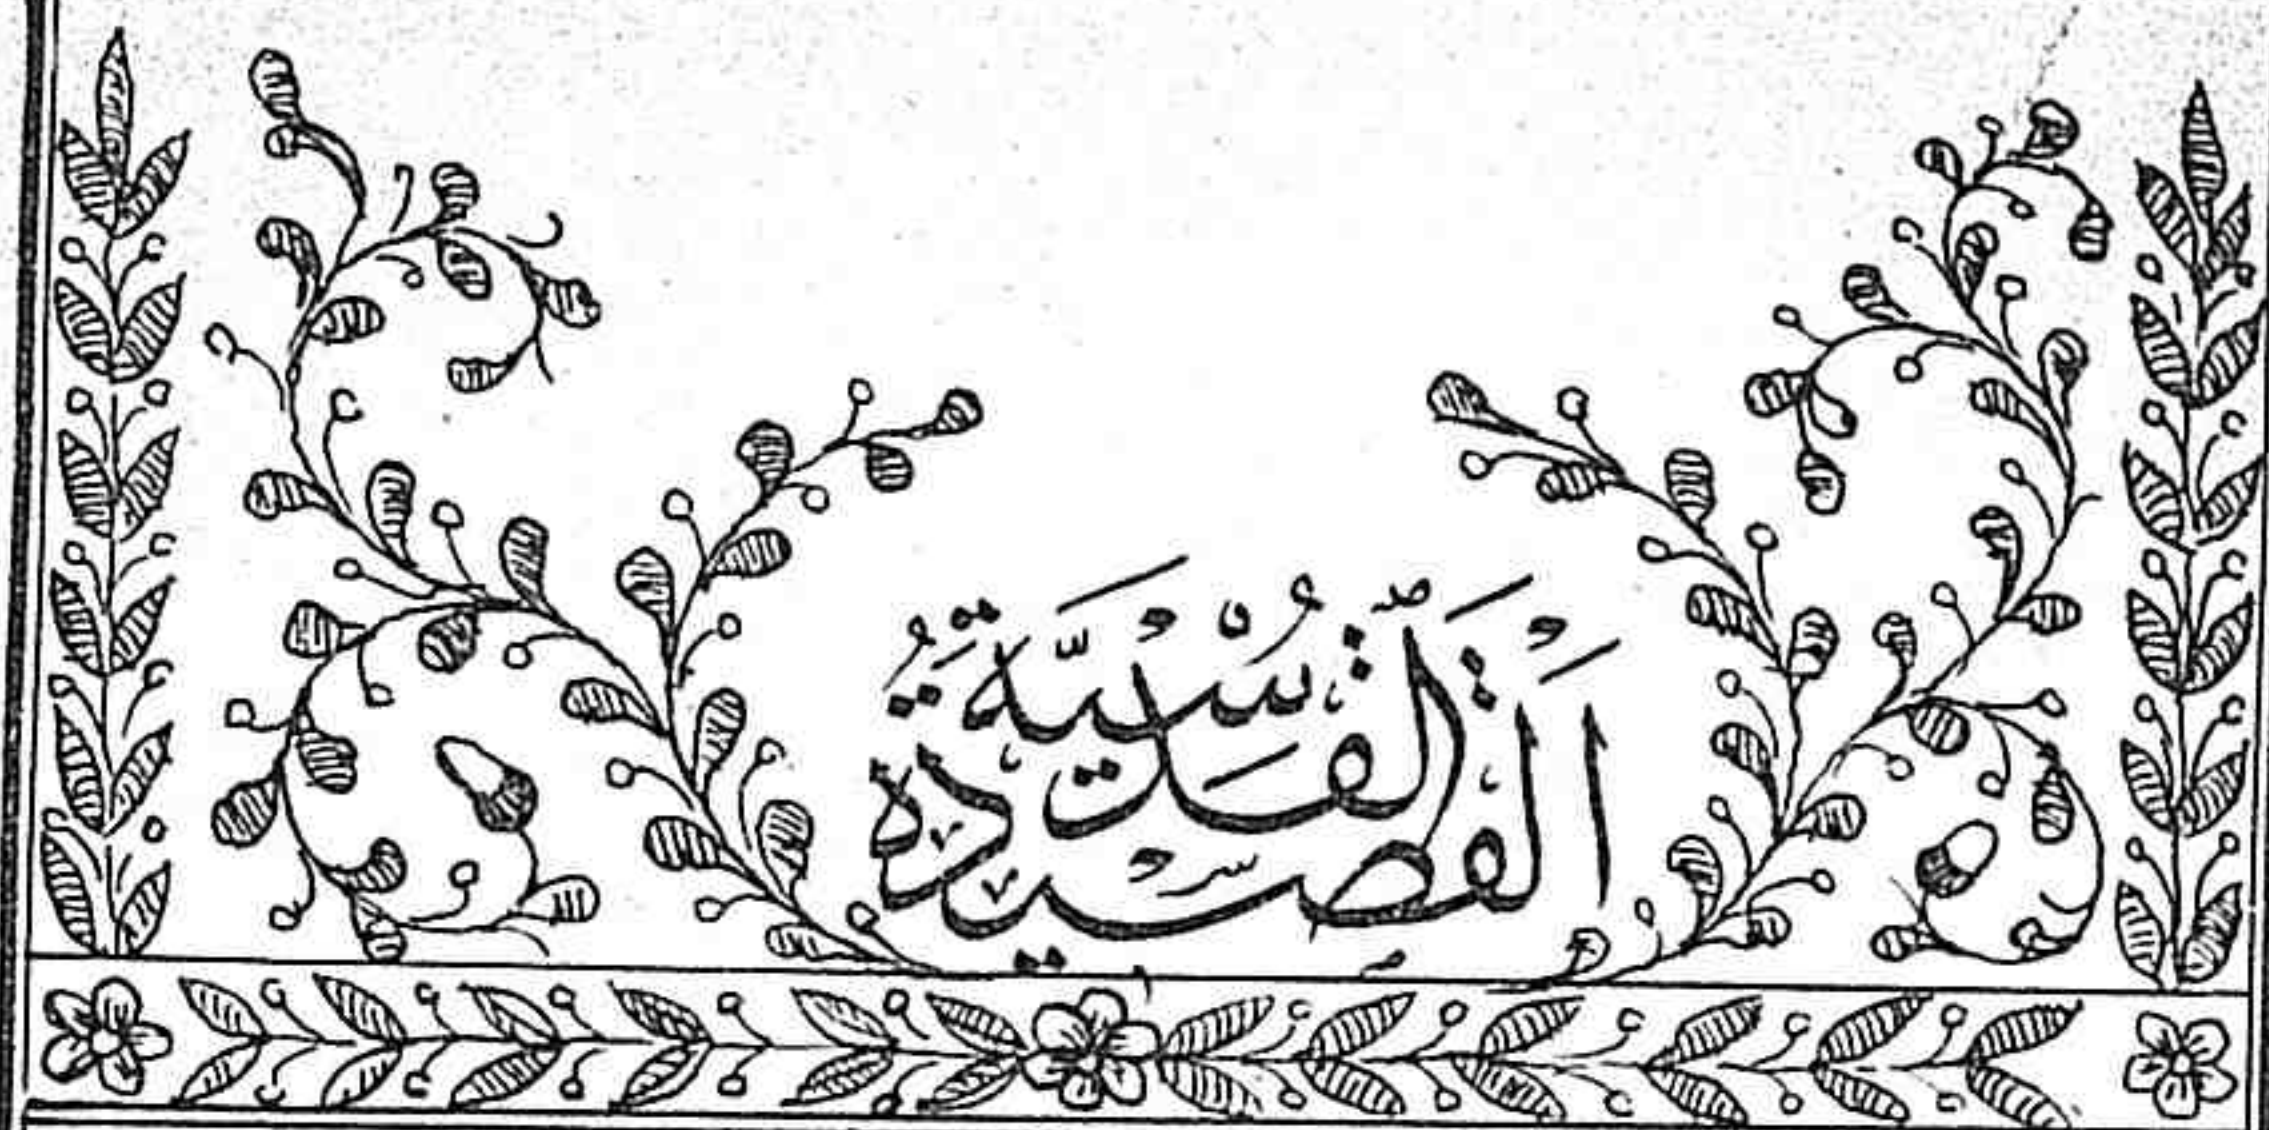 اَلْقَصِيدَةُ الْقُدْسِيَّةُ